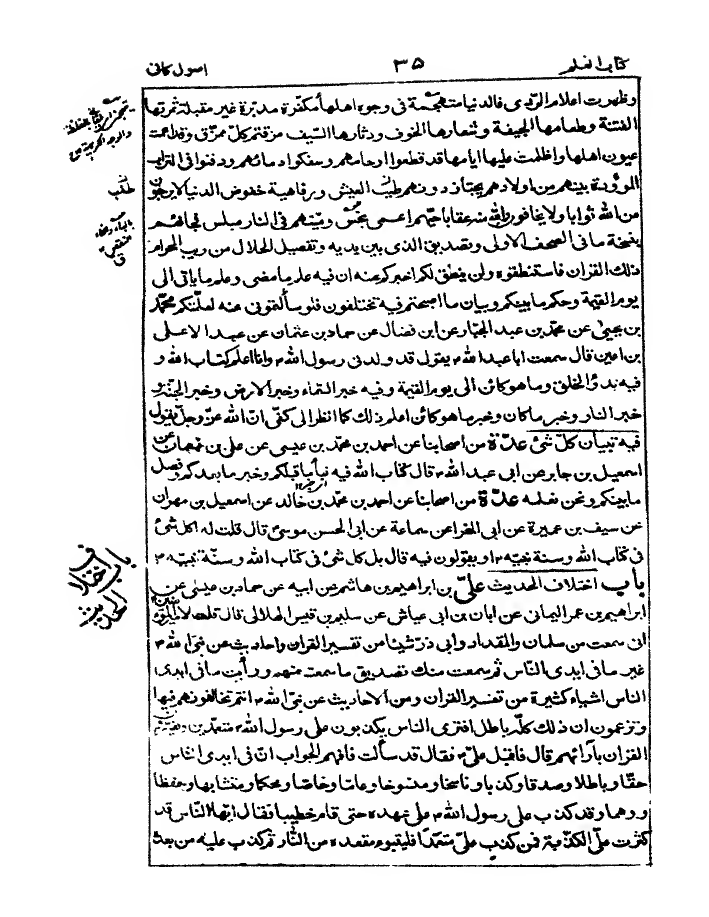 كتاب العلم ٣٥ اصول كافى
وظهرت اعلام الردى فالدنيا متهجمة فى وجوه اهلها مكفهرة مدبرة غير مقبلة ثمرتها
الفتنة وطعامها الجيفة وشعارها الخوف ودثارها السيف مزقتم كل ممزق وقد اعمت
عيون اهلها واظلمت عليها ايامها قد قطعوا ارحامهم وسفكوا دمائهم ودفنوا فى التراب
الموؤدة بينهم من اولادهم يجتاز دونهم طيب العيش ورفاهية خفوض الدنيا لا يرجون
من الله ثوابا ولا يخافون والله منه عقابا حيهم اعمى نجس وميتهم فى النار مبلس فجائهم
بنسخة ما فى الصحف الاولى وتصديق الذى بين يديه وتفصيل الحلال من ريب الحرام
ذلك القران فاستنطقوه ولن ينطق لكم اخبركم عنه ان فيه علم ما مضى وعلم ما ياتى الى
يوم القيمة وحكم ما بينكم وبيان ما اصبحتم فيه تختلفون فلو سألتمونى عنه لعلمتكم محمد
بن يحيى عن محمد بن عبد الجبار عن ابن فضال عن حماد بن عثمان عن عبد الاعلى
بن اعين قال سمعت ابا عبد الله م يقول قد ولدنى رسول الله م وانا اعلم كتاب الله و
فيه بدؤ الخلق وما هو كائن الى يوم القيمة وفيه خبر السماء وخبر الارض وخبر الجنة و
خبر النار وخبر ما كان وخبر ما هو كائن اعلم ذلك كما انظر الى كفى ان الله عز وجل يقول
فيه تبيان كل شئ عدة من اصحابنا عن احمد بن محمد بن عيسى عن على بن نعمان عن
اسمعيل بن جابر عن ابى عبد الله م قال كتاب الله فيه نبأ ما قبلكم وخبر ما بعدكم وفصل
ما بينكم ونحن نعلمه عدة من اصحابنا عن احمد بن محمد بن خالد عن اسمعيل بن مهران
عن سيف بن عميرة عن ابى المغرا عن سماعة عن ابى الحسن موسى قال قلت له اكل شئ
فى كتاب الله وسنة نبيه م او يقولون فيه قال بل كل شئ فى كتاب الله وسنة نبيه م
باب اختلاف الحديث على بن ابراهيم بن هاشم عن ابيه عن حماد بن عيسى عن
ابراهيم بن عمر اليمانى عن ابان بن ابى عياش عن سليم بن قيس الهلالى قال قلت لامير المؤمنين
انى سمعت من سلمان والمقداد وابى ذر شيئا من تفسير القران واحاديث عن نبى الله م
غير ما فى ايدى الناس ثم سمعت منك تصديق ما سمعت منهم ورأيت ما فى ايدى
الناس اشياء كثيرة من تفسير القران ومن الاحاديث عن نبى الله م انتم تخالفونهم فيها
وتزعمون ان ذلك كله باطل افترى الناس يكذبون على رسول الله م متعمدين ويفسرون
القران بآرائهم قال فاقبل على م فقال قد سألت فافهم الجواب ان فى ايدى الناس
حقا وباطلا وصدقا وكذبا وناسخا ومنسوخا وعاما وخاصا ومحكما ومتشابها وحفظا
ووهما وقد كذب على رسول الله م على عهده حتى قام خطيبا فقال ايها الناس قد
كثرت على الكذابة فمن كذب على متعمدا فليتبوء مقعده من النار ثم كذب عليه من بعد
طلب
باب اختلاف
الحديث